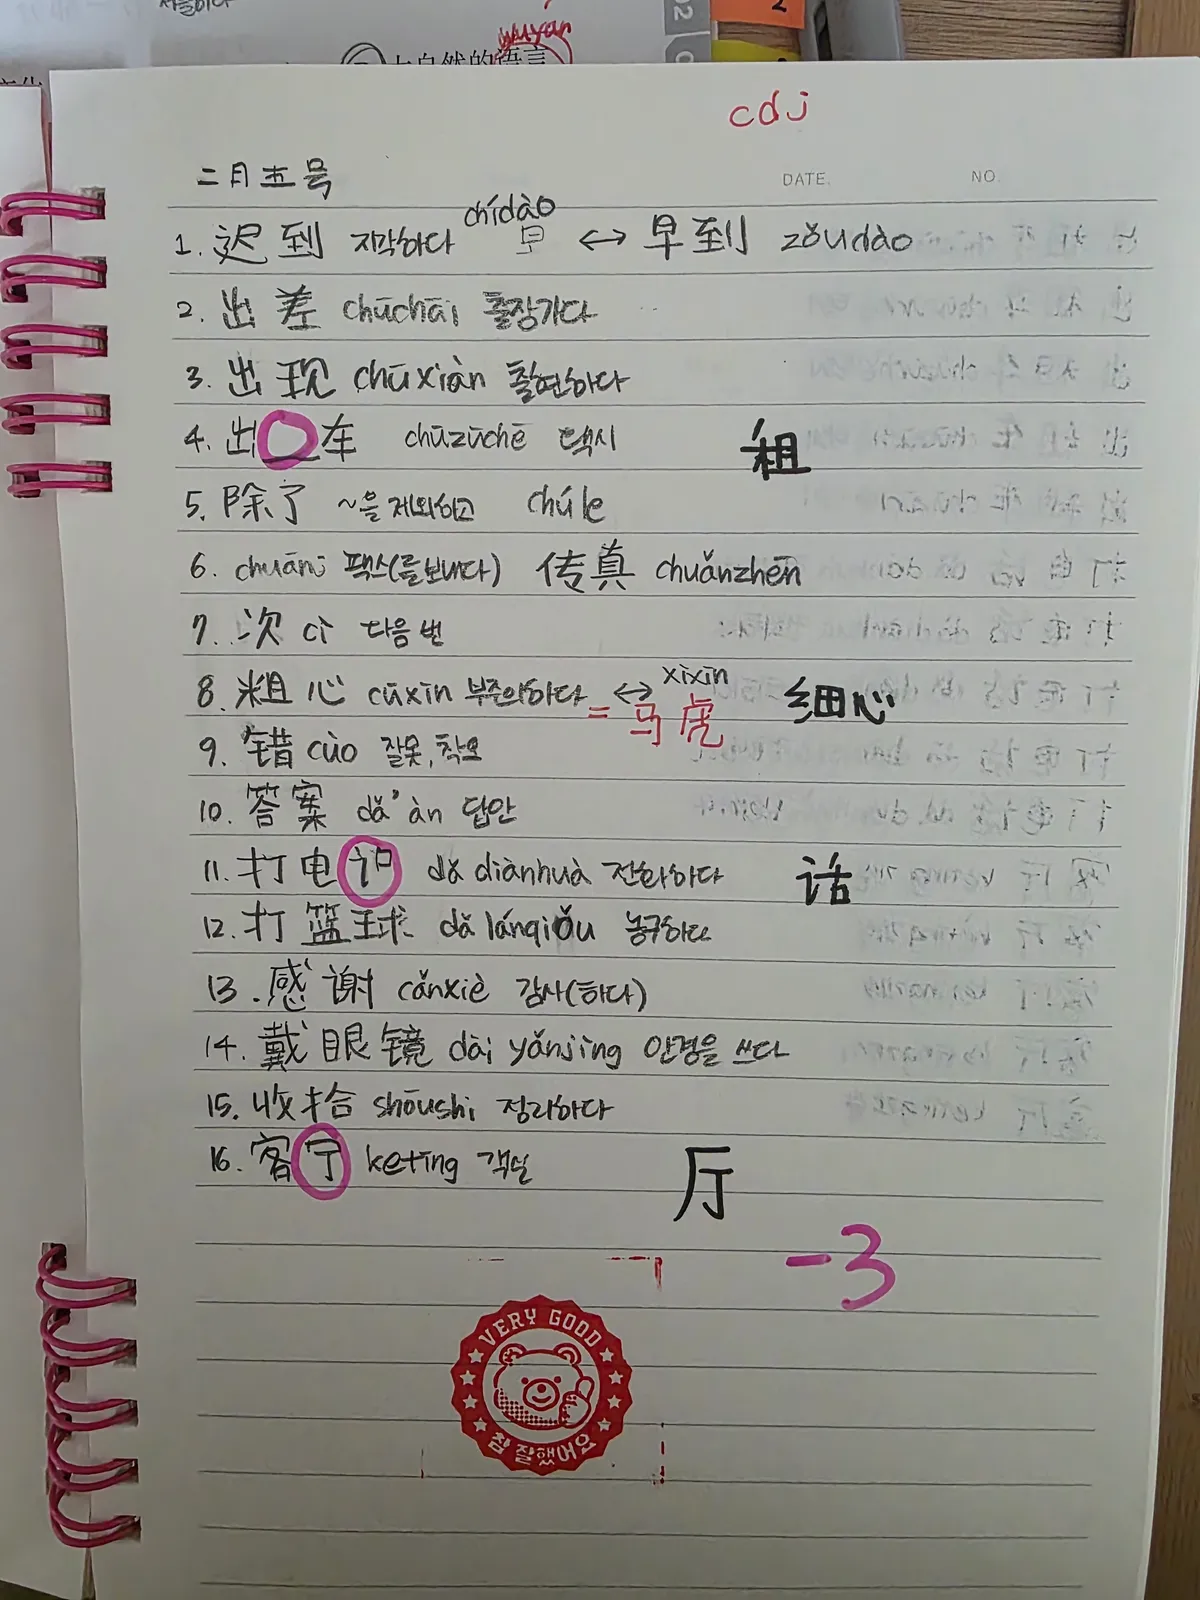 wuyan
大自然的语言
cdj
二月五号
DATE. NO.
1. 迟到 지각하다 chídào 早 ↔ 早到 zǒudào
2. 出差 chūchāi 출장가다
3. 出现 chūxiàn 출현하다
4. 出_车 chūzūchē 택시 租
5. 除了 ~을 제외하고 chúle
6. chuāni 팩스(를보내다) 传真 chuǎnzhēn
7. 次 cì 다음 번
8. 粗心 cūxīn 부주의하다 ↔ xìxīn 细心
= 马虎
9. 错 cùo 잘못, 착오
10. 答案 dǎ'àn 답안
11. 打电 dǎ diànhuà 전화하다 话
12. 打篮球 dǎ lánqiǒu 농구하다
13. 感谢 cǎnxiè 감사(하다)
14. 戴眼镜 dài yǎnjìng 안경을 쓰다
15. 收拾 shōushi 정리하다
16. 客宁 ketīng 객실 厅
-3
VERY GOOD
참 잘했어요